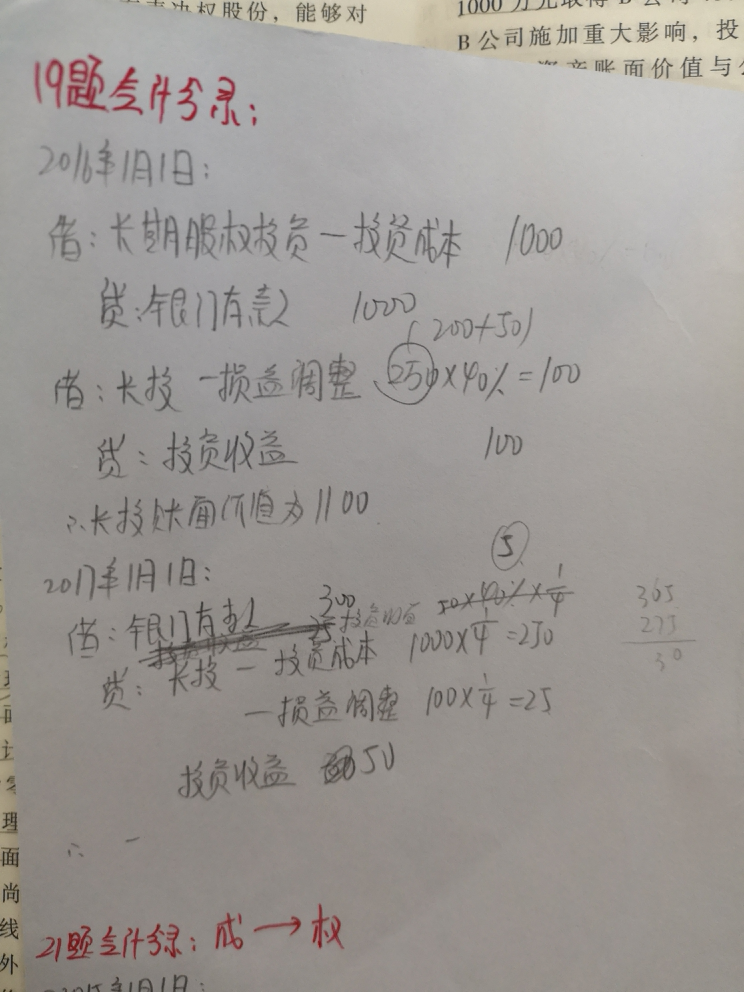 有表决权股份，能够对
1000万元取得B公司
B公司施加重大影响，投
资产账面价值与公
19题会计分录：
2016年1月1日：
借：长期股权投资－投资成本 1000
贷：银行存款 1000
(200+50)
借：长投－损益调整 250×40%=100
贷：投资收益 100
∴长投账面价值为1100
⑤
2017年1月1日：
借：银行存款 300
50×40%×1/4
365
275
30
贷：长投－投资成本 1000×1/4=250
－损益调整 100×1/4=25
投资收益 50
∴ －
21题会计分录：成→权
2015年1月1日：
理
面
尚
线
外